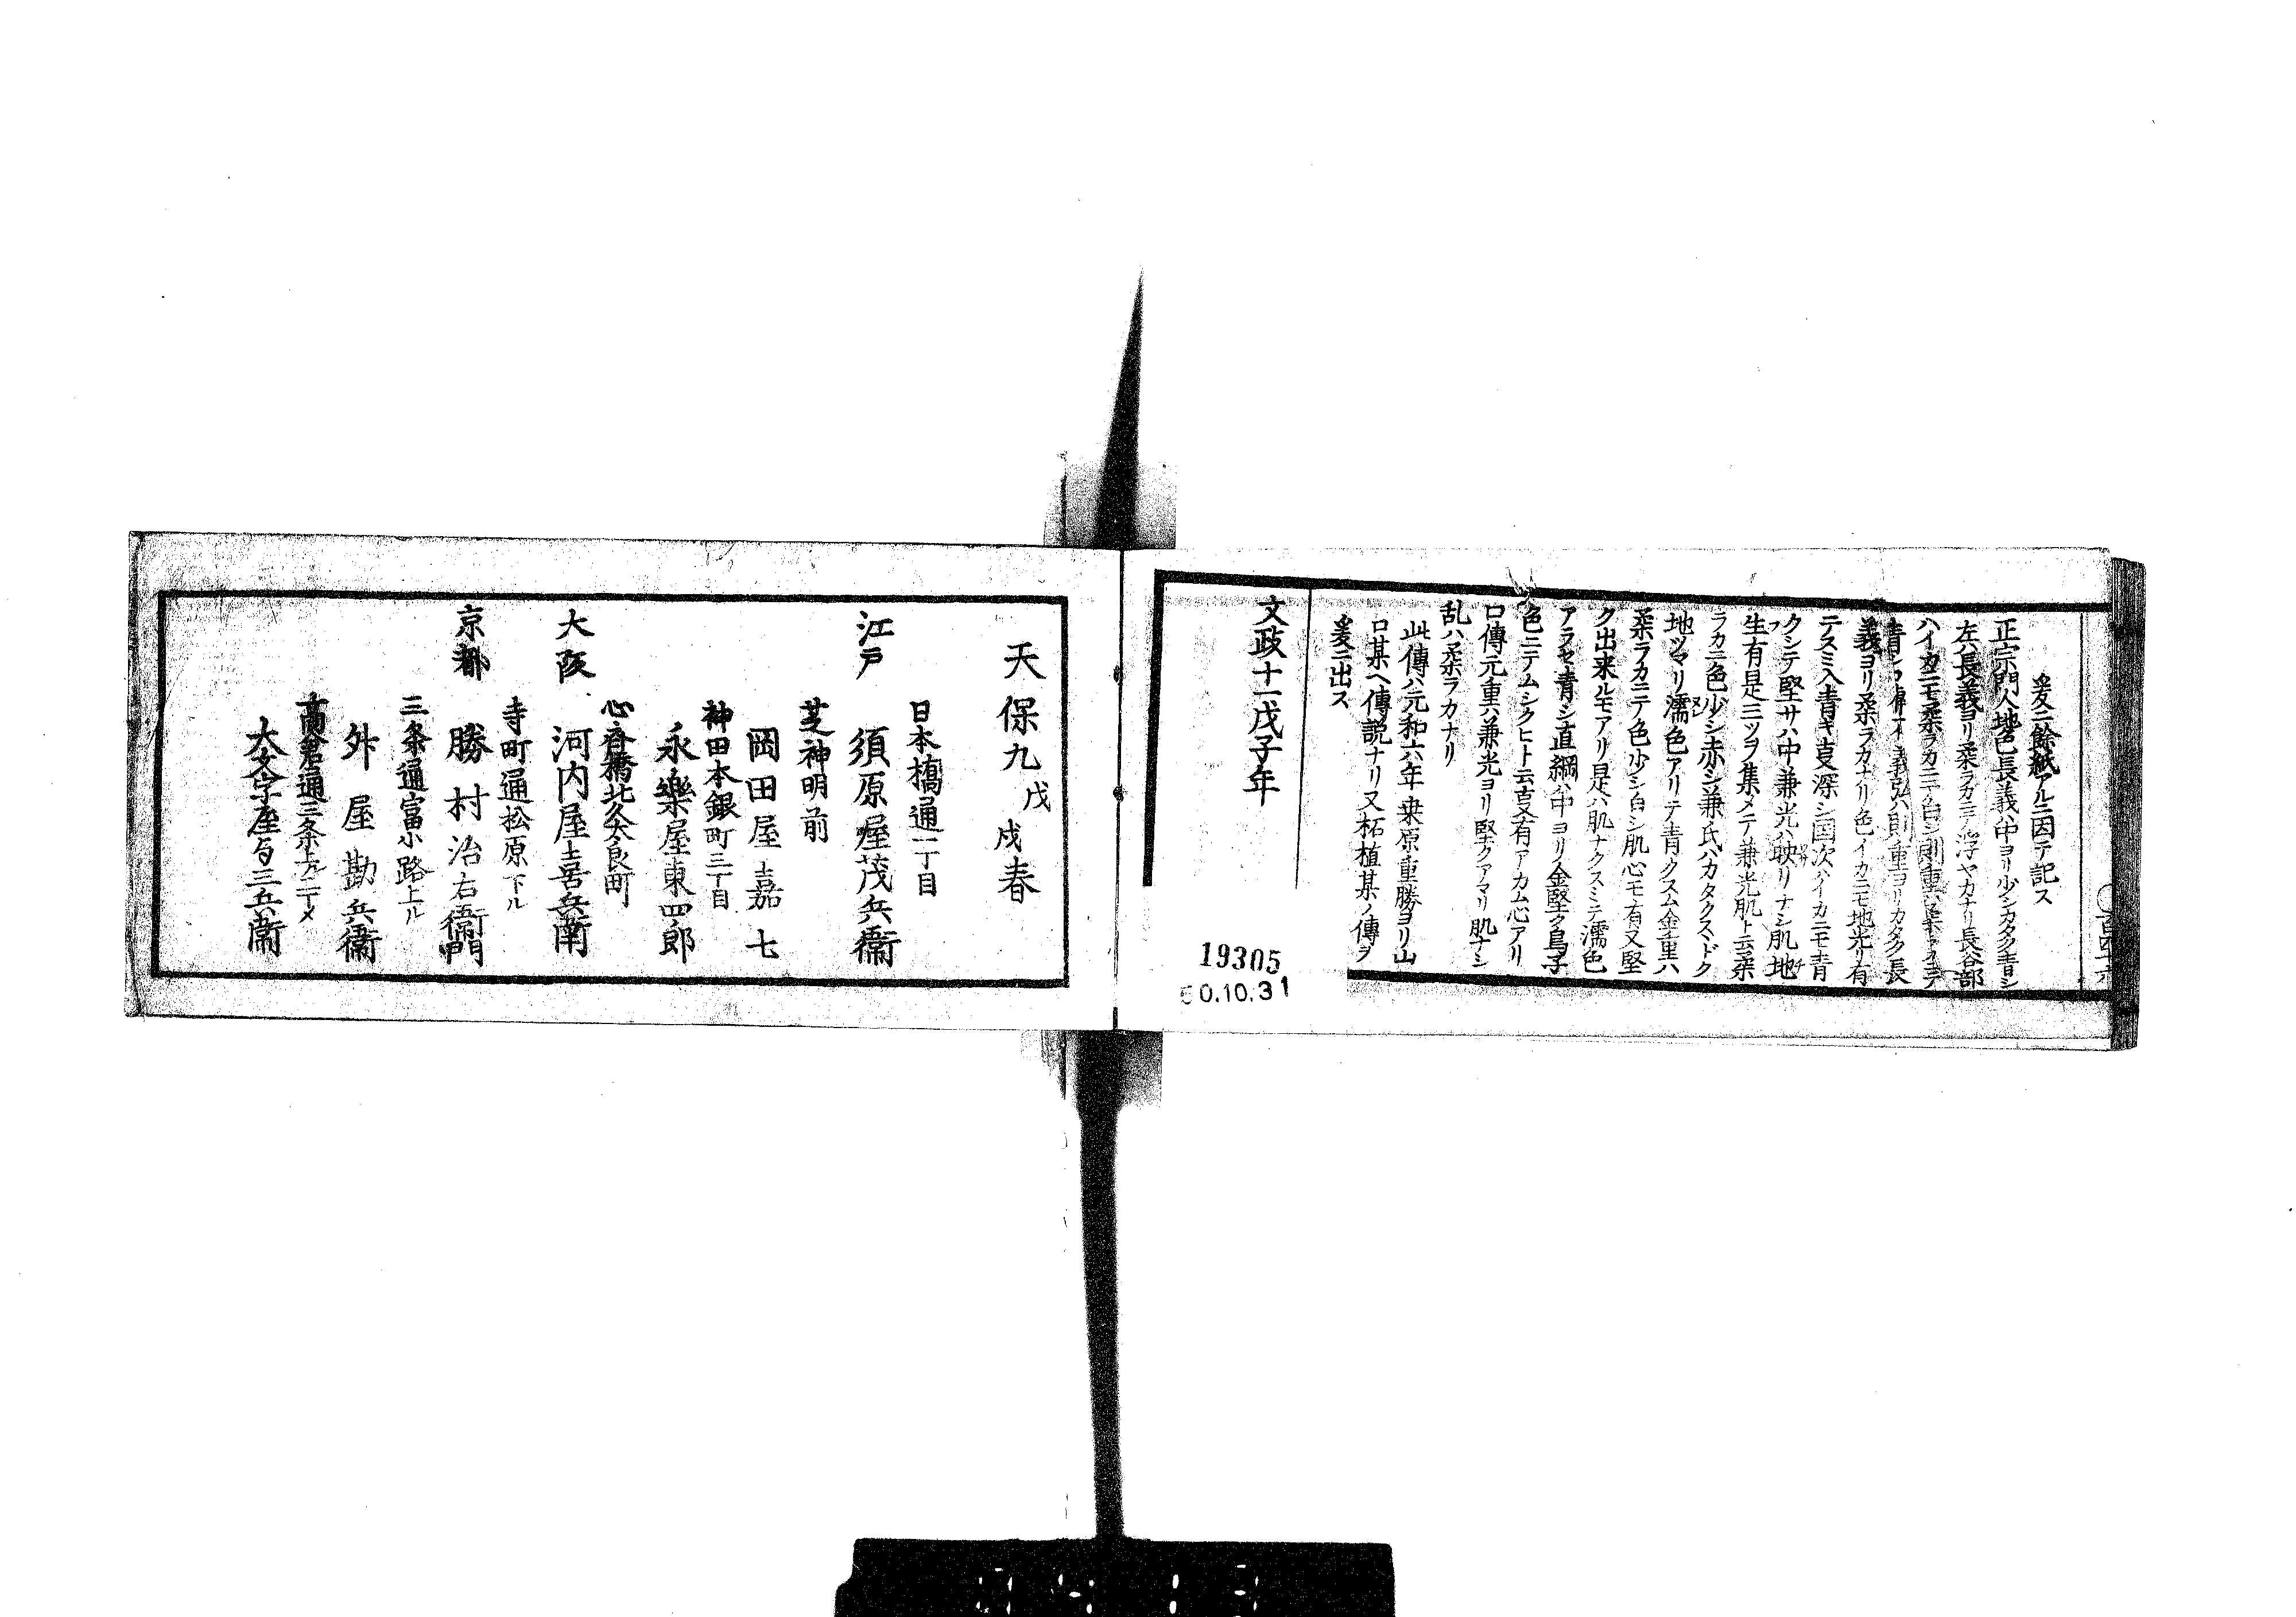 爰ニ餘紙アルニ因テ記ス
正宗門人地色長義ハ中ヨリ少シカタク青シ
左ハ長義ヨリ柔ラカニテ浮ヤカナリ長谷部
ハイカニモ柔ラカニテ白シ則重ハ柔ラカニテ
青シ 義弘ハ則重ヨリカタク長
義ヨリ柔ラカナリ色イカニモ地光リ有
テスミ入青キ㕝深シ国次ハイカニモ青
クシテ堅サハ中兼光ハ映リナシ肌地
生有是三ツヲ集メテ兼光肌ト云柔
ラカニ色少シ赤シ兼氏ハカタクスドク
地ヅマリ濡色アリテ青クスム金重ハ
柔ラカニテ色少シ白シ肌心モ有又堅
ク出来ルモアリ是ハ肌ナクスミテ濡色
アラセ青シ直綱ハ中ヨリ金堅ク鳥子
色ニテムシクヒト云㕝有アカム心アリ
口傳元重ハ兼光ヨリ堅クアマリ肌ナシ
乱ハ柔ラカナリ
此傳ハ元和六年桒原重勝ヨリ山
口某ヘ傳說ナリ又柘植某ノ傳ヲ
爰ニ出ス
文政十一戊子年
19305
50.10.31
天保九戊戌春
日本橋通一丁目
江戸 須原屋茂兵衞
芝神明前
岡田屋嘉七
神田本銀町三丁目
永樂屋東四郎
心斎橋北久太良町
大阪 河内屋喜兵衞
寺町通松原下ル
京都 勝村治右衞門
三条通富小路上ル
外屋勘兵衞
高倉通三条上ル二丁メ
大文字屋与三兵衞